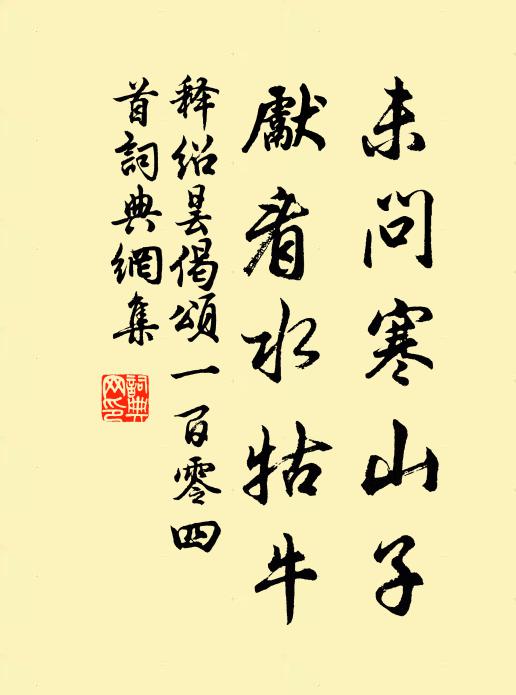 未问寒山子
献看水牯牛
释绍昙偈颂一百零四
首词典网集
词典网印